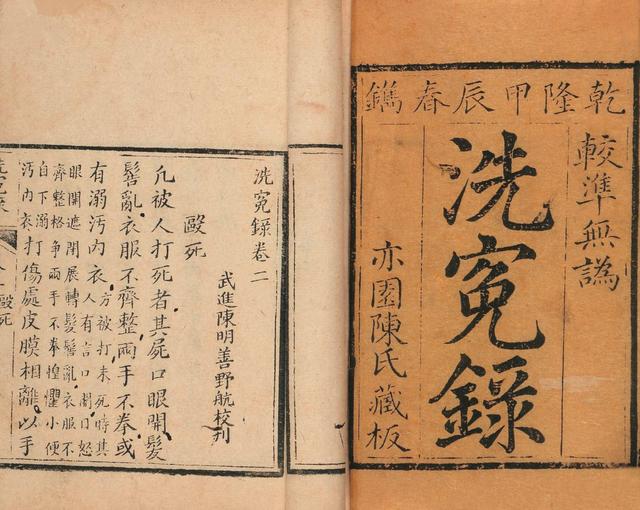 乾隆甲辰春鐫
較準無譌
洗冤錄
亦園陳氏藏板
洗冤錄卷二
武進陳明善野航校刊
毆死
凡被人打死者其屍口眼開髮
髻亂衣服不齊整兩手不拳或
有溺汚內衣
人方被打未死時其
人有言口開口怒
眼開遮閉展轉髮髻亂衣服不
齊整格爭兩手不拳惶懼小便
自下溺
汚內衣打傷處皮膜相離以手
毆死